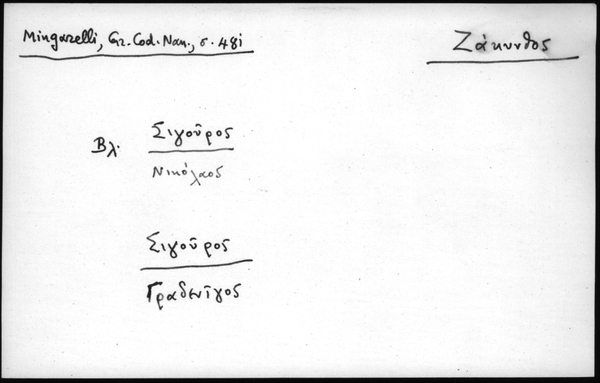 Mingarelli, Gr. Cod. Nan., σ. 481
Ζάκυνθος
Βλ. Σιγοῦρος
Νικόλαος
Σιγοῦρος
Γραδενῖγος